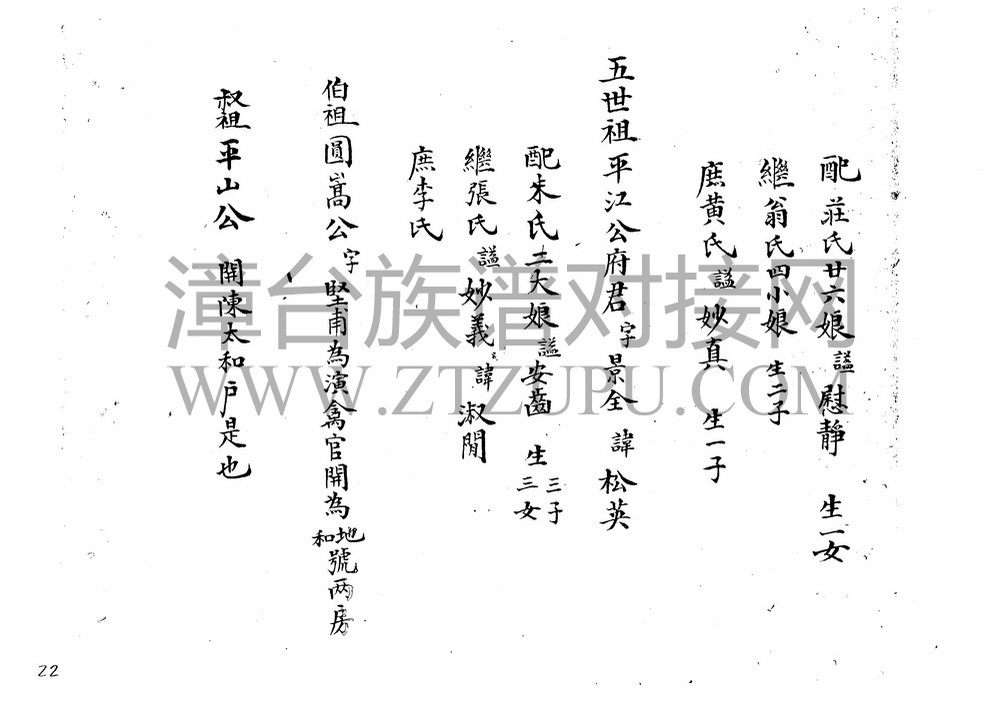 配莊氏廿六娘謚慰靜 生一女
繼翁氏四小娘 生二子
庶黃氏謚妙真 生一子
五世祖平江公府君字景全 諱松英
配朱氏二大娘謚安齒 生三子三女
繼張氏謚妙義 諱淑閒
庶李氏
伯祖圓嵩公字堅甫為演禽官開為地和號兩房
叔祖平山公 開陳太和戶是也
漳台族谱对接网
WWW.ZTZUPU.COM
22